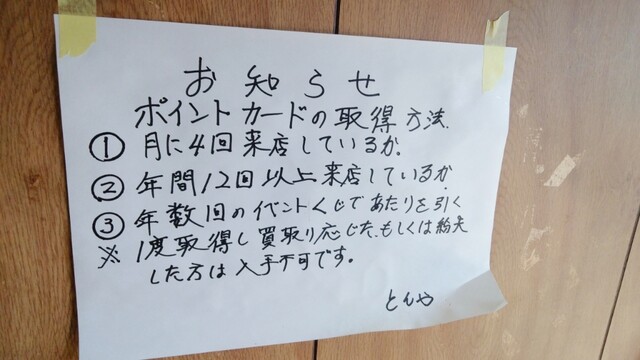 お知らせ
ポイントカードの取得方法.
① 月に4回来店しているか.
② 年間12回以上来店しているか.
③ 年数回のイベントくじであたりを引く
※ 1度取得し買取り応じた、もしくは紛失
した方は入手不可です。
とんや